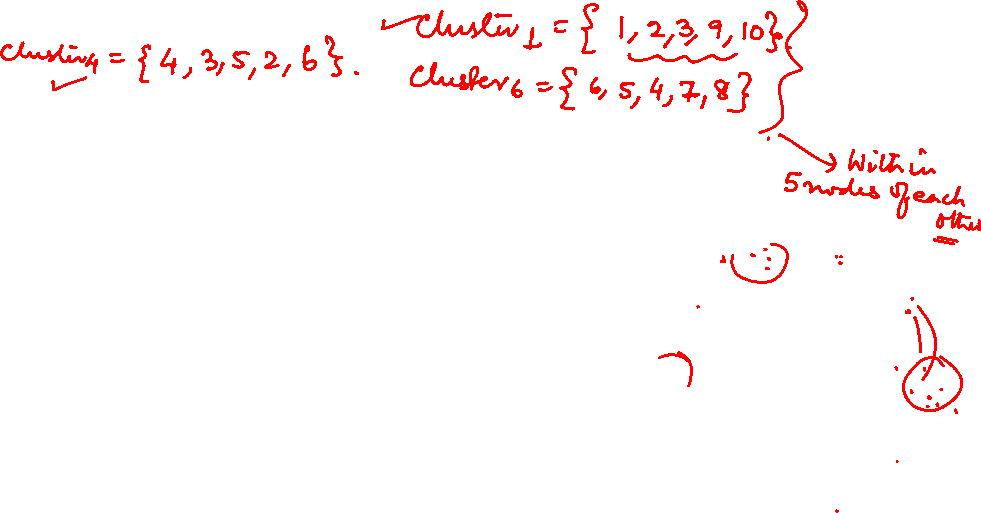 Cluster4 = { 4, 3, 5, 2, 6 }.
Cluster1 = { 1, 2, 3, 9, 10 }
Cluster6 = { 6, 5, 4, 7, 8 }
Within
5 nodes of each
other